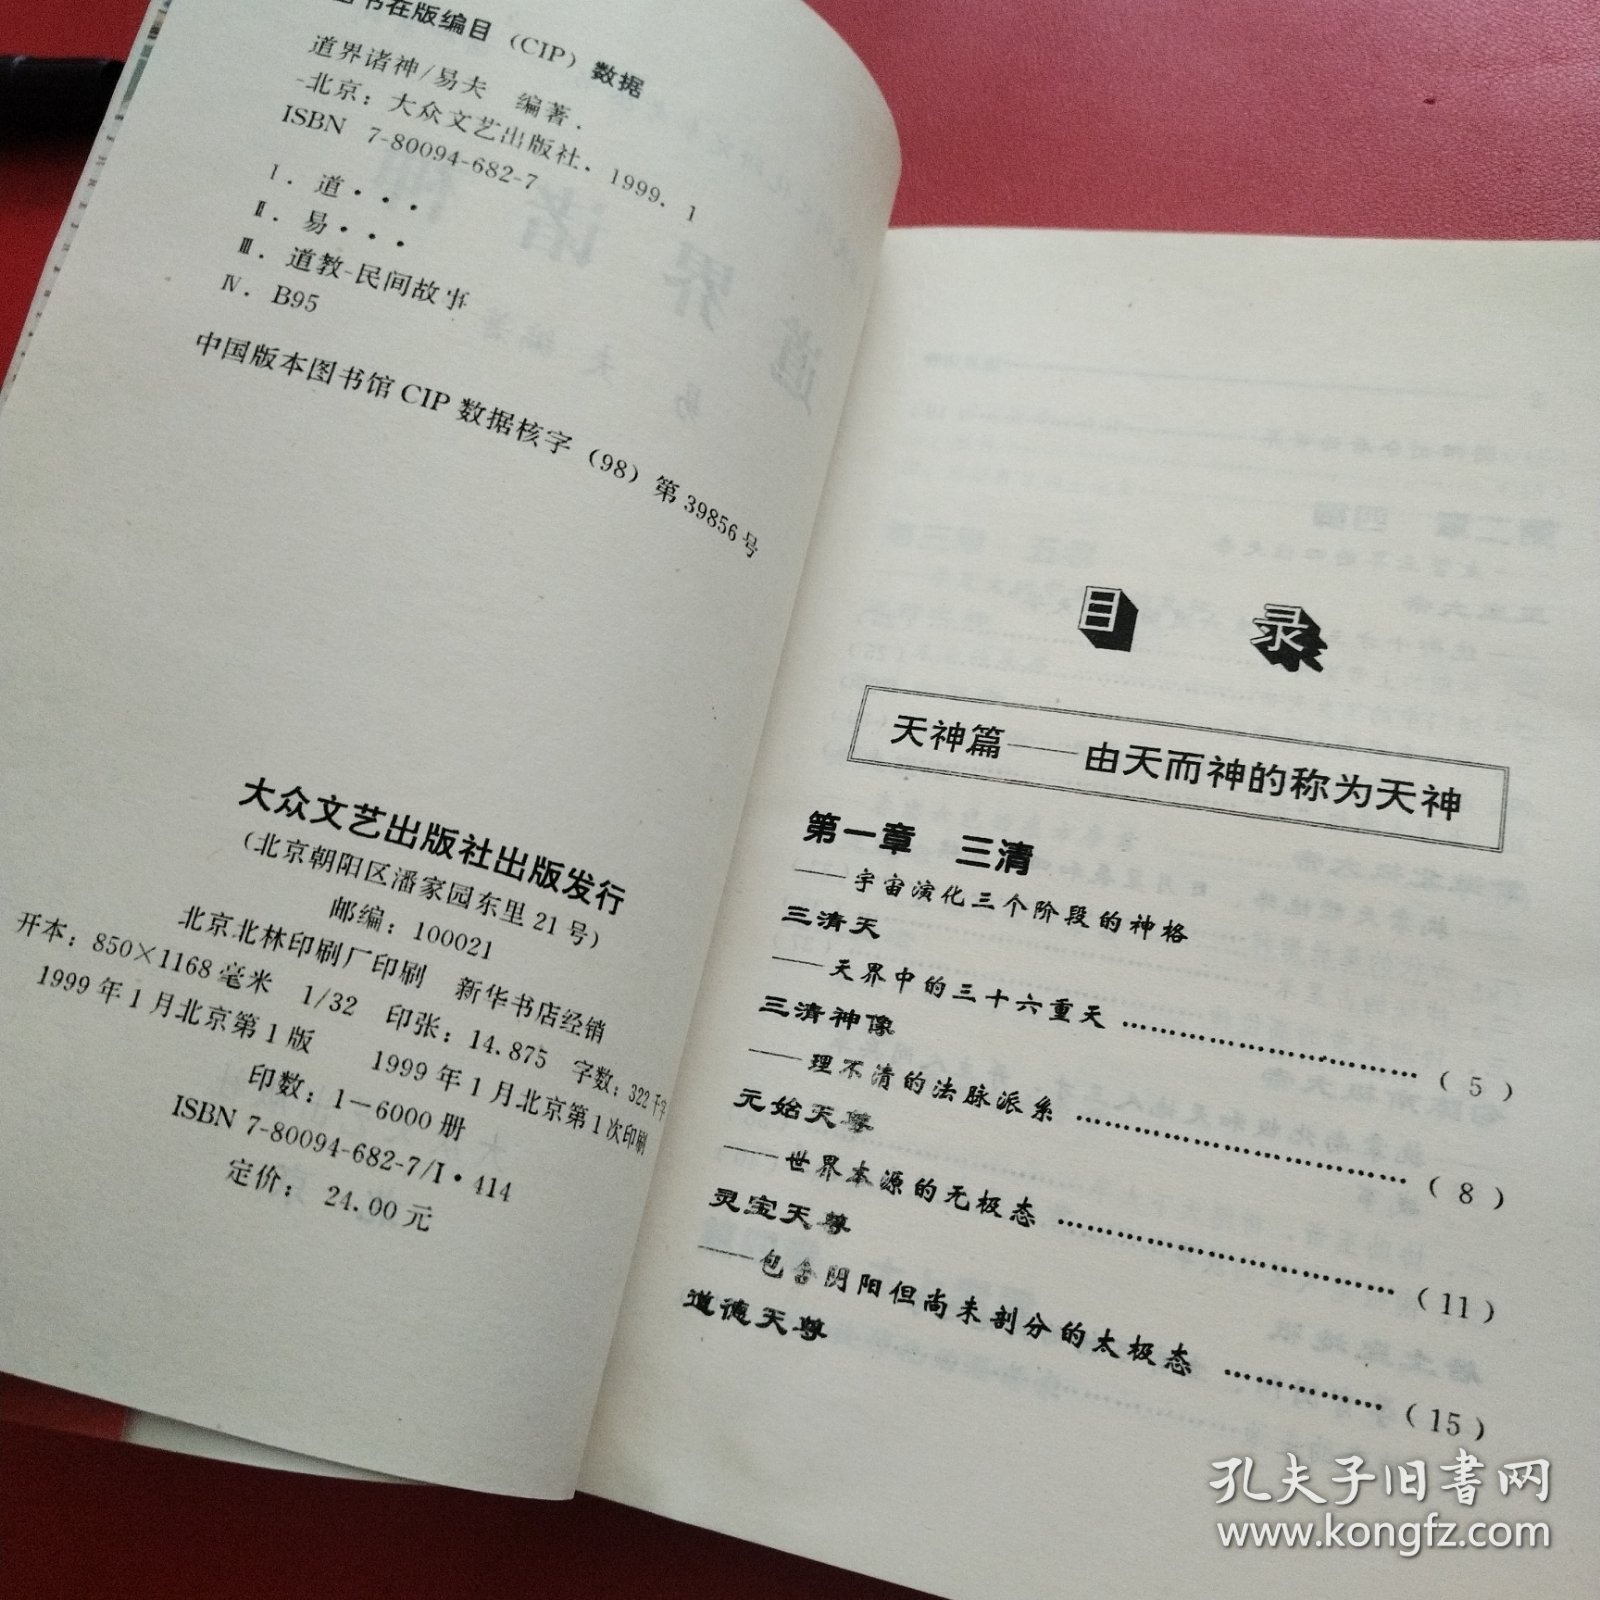 书在版编目（CIP）数据
道界诸神/易夫 编著．
-北京：大众文艺出版社．1999．1
ISBN 7-80094-682-7
Ⅰ．道···
Ⅱ．易···
Ⅲ．道教-民间故事
Ⅳ．B95
中国版本图书馆CIP数据核字（98）第39856号
大众文艺出版社出版发行
（北京朝阳区潘家园东里21号）
邮编：100021
北京北林印刷厂印刷 新华书店经销
开本：850×1168毫米 1/32 印张：14.875 字数：322千字
1999年1月北京第1版 1999年1月北京第1次印刷
印数：1—6000册
ISBN 7-80094-682-7/I·414
定价： 24.00元
目 录
天神篇——由天而神的称为天神
第一章 三清
——宇宙演化三个阶段的神格
三清天
——天界中的三十六重天 ……………………………（5）
三清神像
——理不清的法脉派系 ……………………………（8）
元始天尊
——世界本源的无极态 ……………………………（11）
灵宝天尊
——包含阴阳但尚未剖分的太极态 ……………（15）
道德天尊
孔夫子旧书网
www.kongfz.com